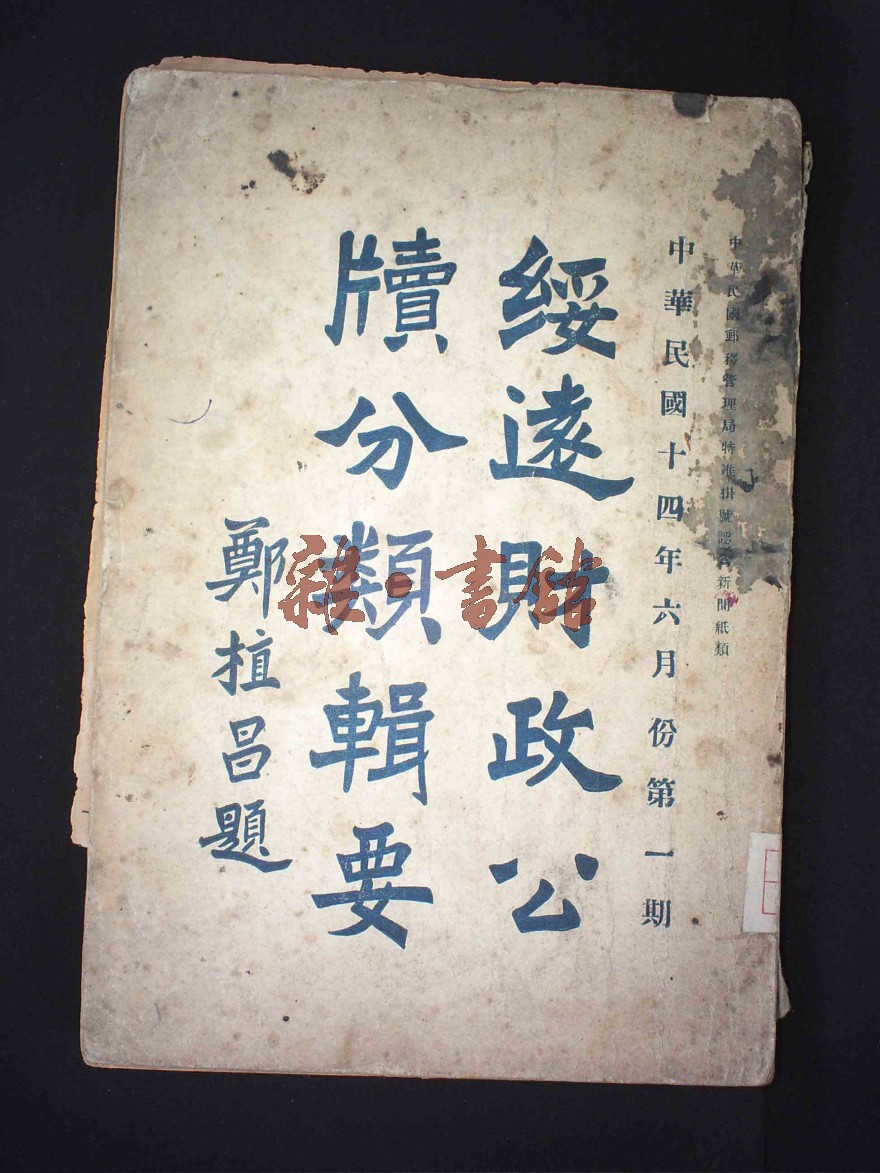 中華民國郵務管理局特准掛號認為新聞紙類
中華民國十四年六月份第一期
綏遠財政公
牘分類輯要
鄭植昌題
雜·書館